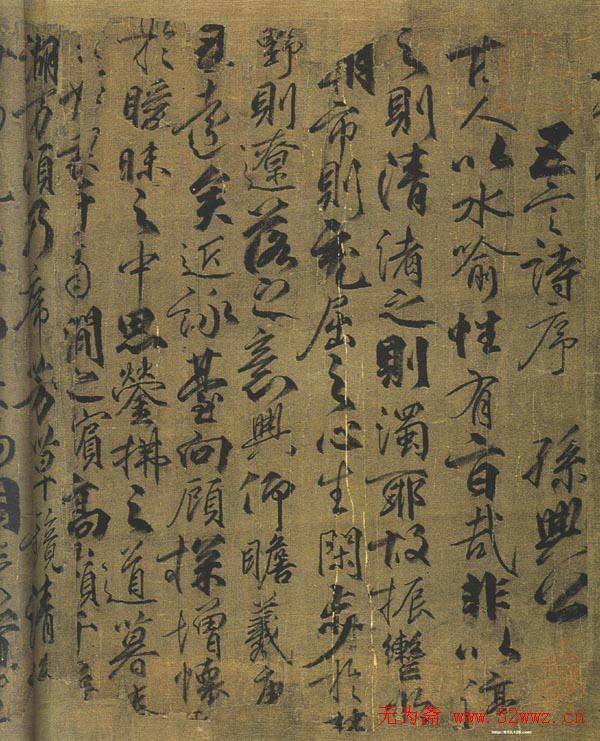 五言詩序 孫興公
古人以水喻性有旨哉非以渟
之則清淆之則濁耶故振轡於
朝市則充屈之心生閑步於林
野則遼落之意興仰瞻羲唐
遠矣近詠臺向顧探增懷
於曖昧之中思瑩拂之道暮春
于南澗之濱高嶺千尋
湖萬頃乃席芳草鏡清流
无为斋 www.52wwz.cn